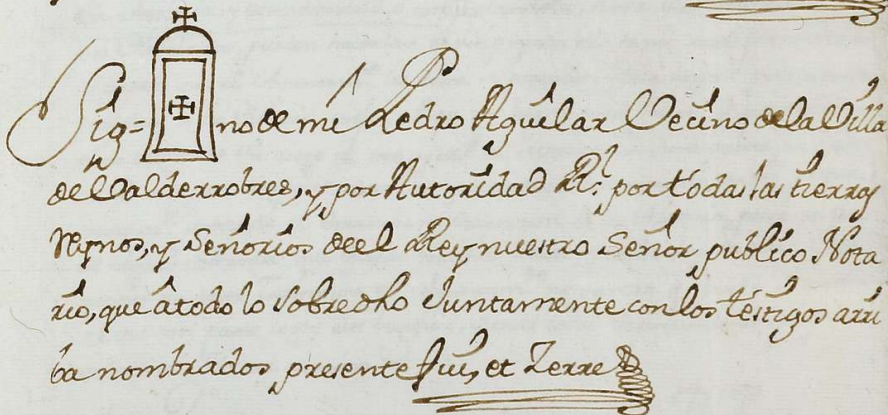 Sig=no de mi Pedro Aguilar Vecino de la Villa
de Valderrobres, y por Autoridad Rl. por todas las tierras
Reynos, y Señorios deel Rey nuestro Señor publico Nota
rio, que â todo lo sobredho Juntamente con los testigos arri
ba nombrados presente fui, et Zerre